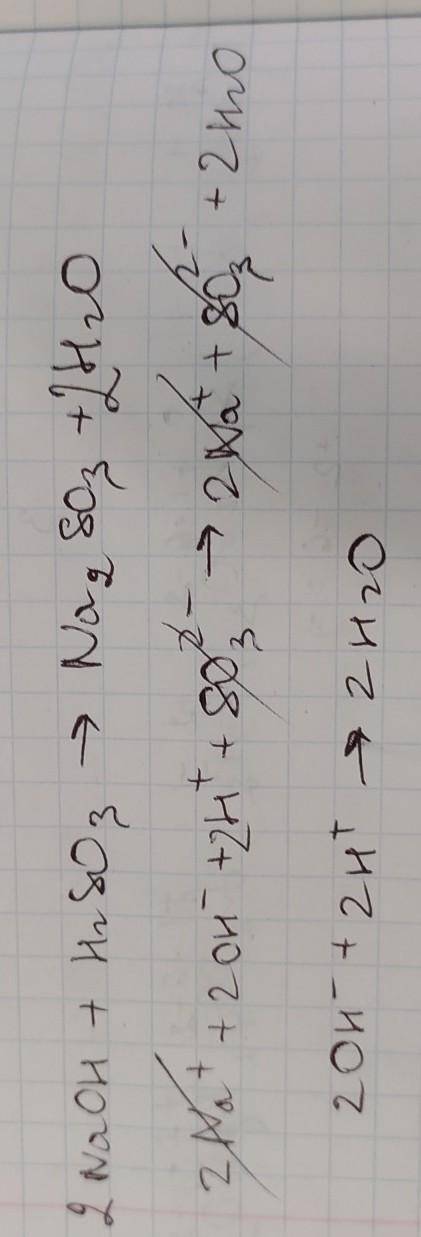 2NaOH + H₂SO₃ → Na₂SO₃ + 2H₂O
2Na⁺ + 2OH⁻ + 2H⁺ + SO₃²⁻ → 2Na⁺ + SO₃²⁻ + 2H₂O
2OH⁻ + 2H⁺ → 2H₂O